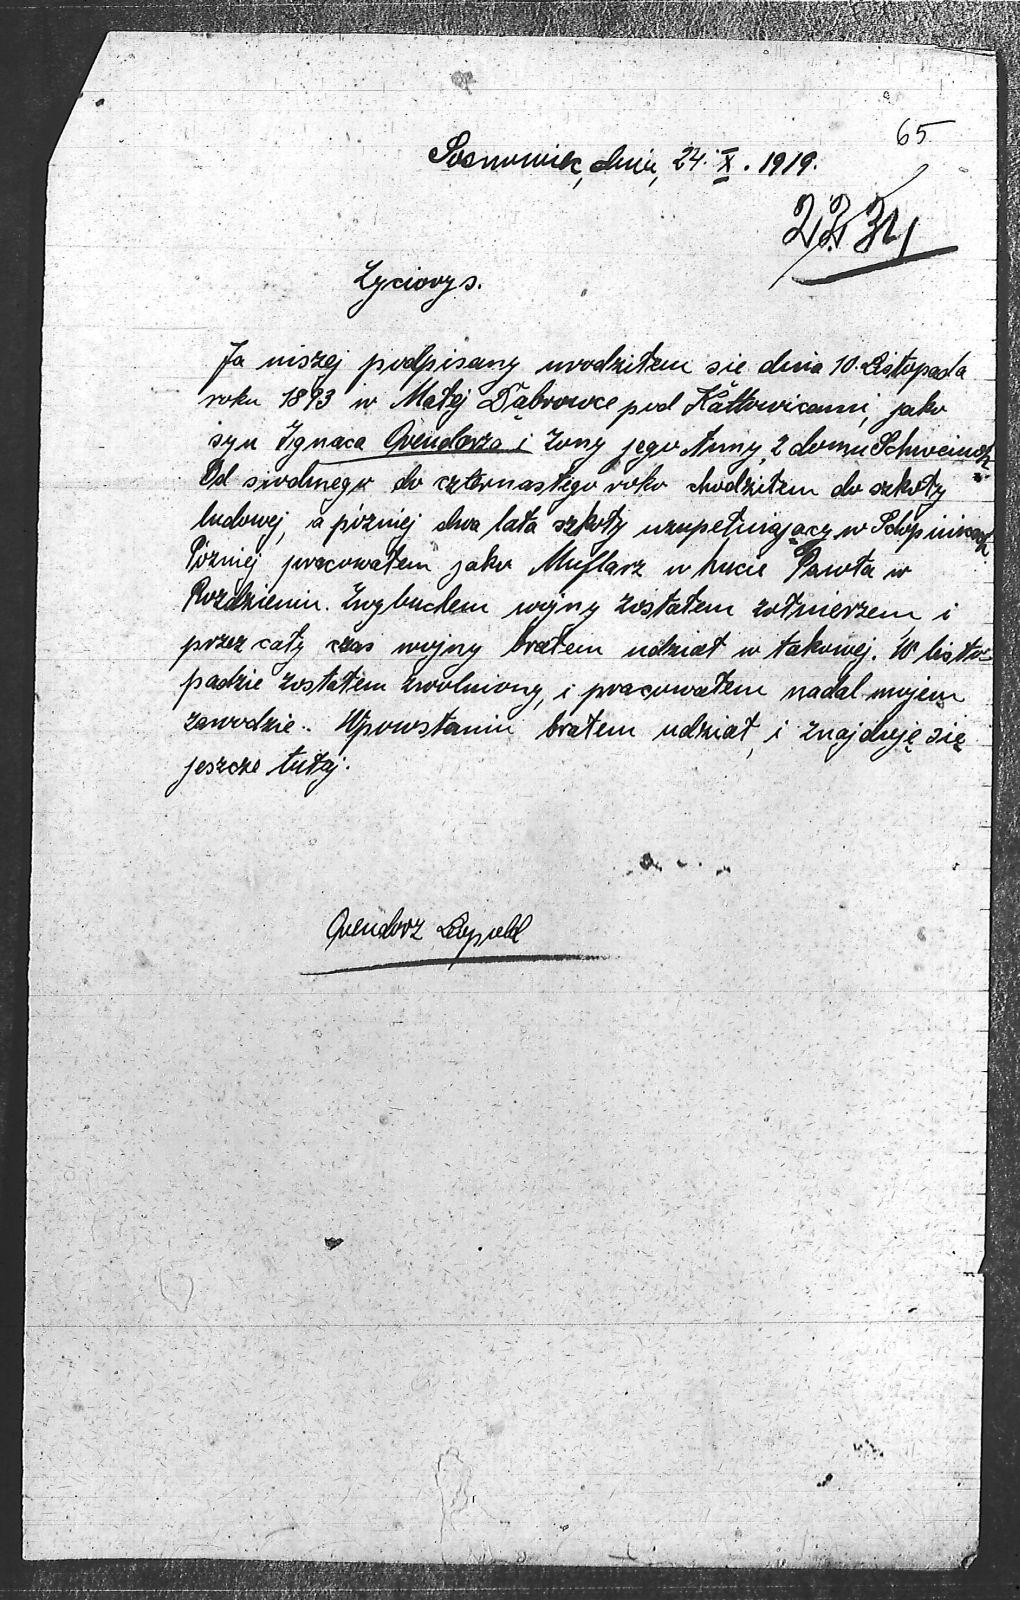 65
Sosnowiec, dnia, 24. X. 1919.
Życiorys.
Ja niszej podpisany urodziłem sie dnia 10. Listopada
roku 1893 w Małej Dąbrowce pod Kattowicami, jako
syn Ignaca Qvendorza i żony jego Anny, z domu
Od siodmego do czternastego roku chodziłem do szkoły
ludowej, a później dwa lata szkoły uzupełniający w Schopinicach
Pózniej pracowałem jako Muflarz w hucie Pawła w
Rozdzieniu. Zwybuchem wojny zostałem żołnierzem i
przez cały czas wojny brałem udział w takowej. W listo=
padzie zostałem zwolniony, i pracowałem nadal mojem
zawodzie. Wpowstaniu brałem udział, i znajduję się
jeszcze tutaj.
Qvendorz Leopold